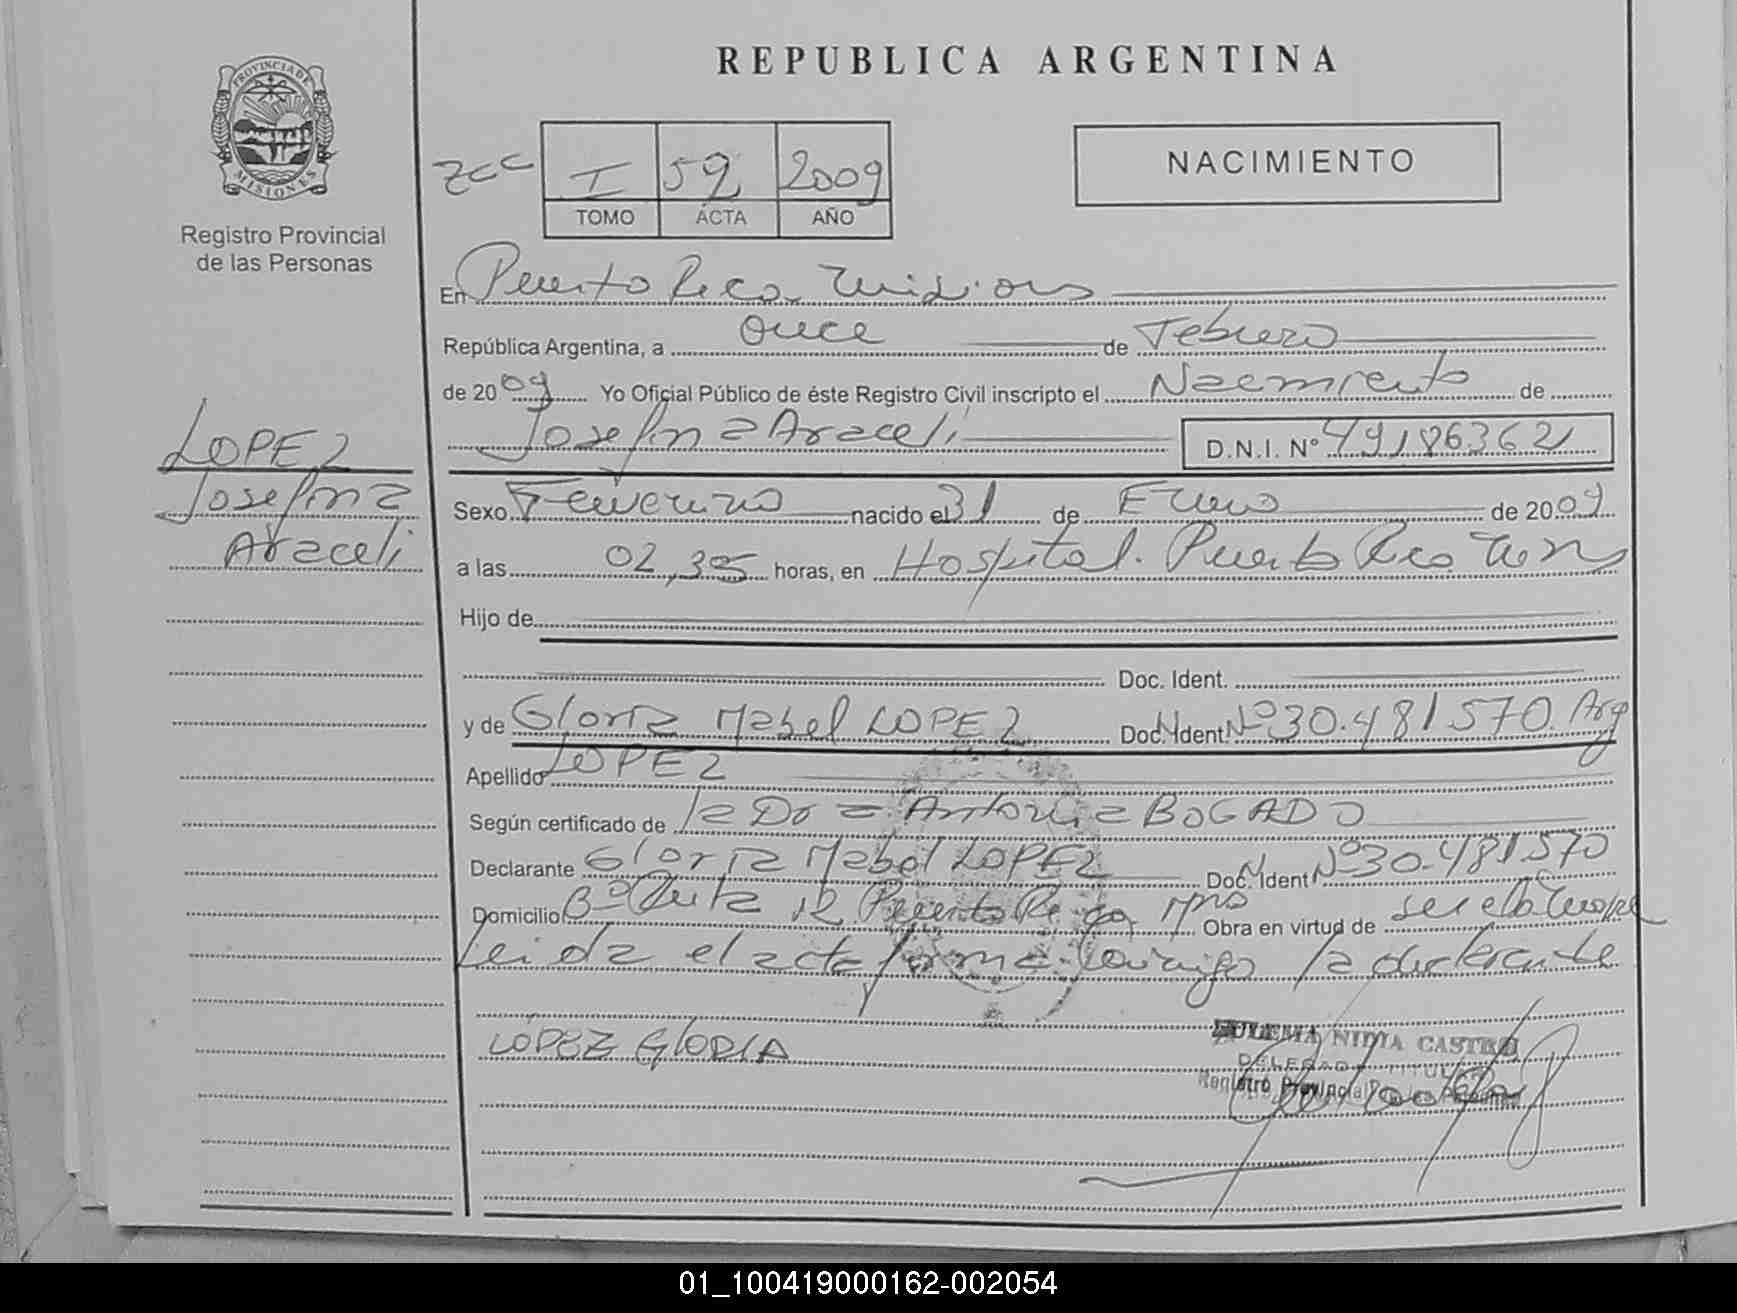 REPUBLICA ARGENTINA
PROVINCIA DE
MISIONES
Registro Provincial
de las Personas
NACIMIENTO
I 59 2009
TOMO ACTA AÑO
En Puerto Rico Misiones
República Argentina, a Once de Febrero
de 2009 Yo Oficial Público de éste Registro Civil inscripto el Nacimiento de
Josefina Araceli D.N.I. Nº 49186362
LOPEZ
Josefina
Araceli
Sexo Femenino nacido el 31 de Enero de 2009
a las 02,35 horas, en Hospital. Puerto Rico
Hijo de
Doc. Ident.
y de Gloria Mabel LOPEZ Doc. Ident. Nº 30.481570. Arg
Apellido LOPEZ
Según certificado de la Dra. Antonia BOGADO
Declarante Gloria Mabel LOPEZ Doc. Ident Nº 30.481570
Domicilio Bº Puerto Rico Mnes Obra en virtud de ser ela
Leida el acta firma conmigo la declarante
LOPEZ GLORIA
ZULEMA NIDIA CASTRO
DELEGADA TITULAR
Registro Provincial de las Personas
01_100419000162-002054